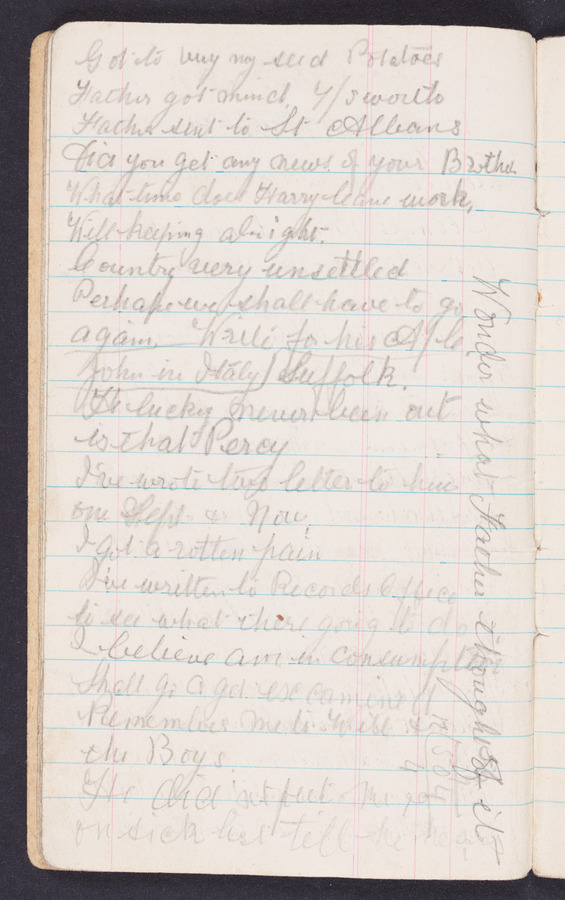 Got to buy my seed Potatoes
Father got minct, 4/3 worth
Father sent to St Albans
Did you get any news of your Brother
What time does Harry leave work,
Will keeping alright.
Country very unsettled
Perhaps we shall have to go
again. Write for his
John in Italy Suffolk.
lucky never been out
is that Percy
I've wrote two letter to him
one Sept & Nov,
I got a rotten pain
I've written to Records Office
to see what there going to do
I believe am in consumption
Shall go & get
Remember me to Will &
the Boys
He did me
on sick list tell he
Wonder what Father thought of it